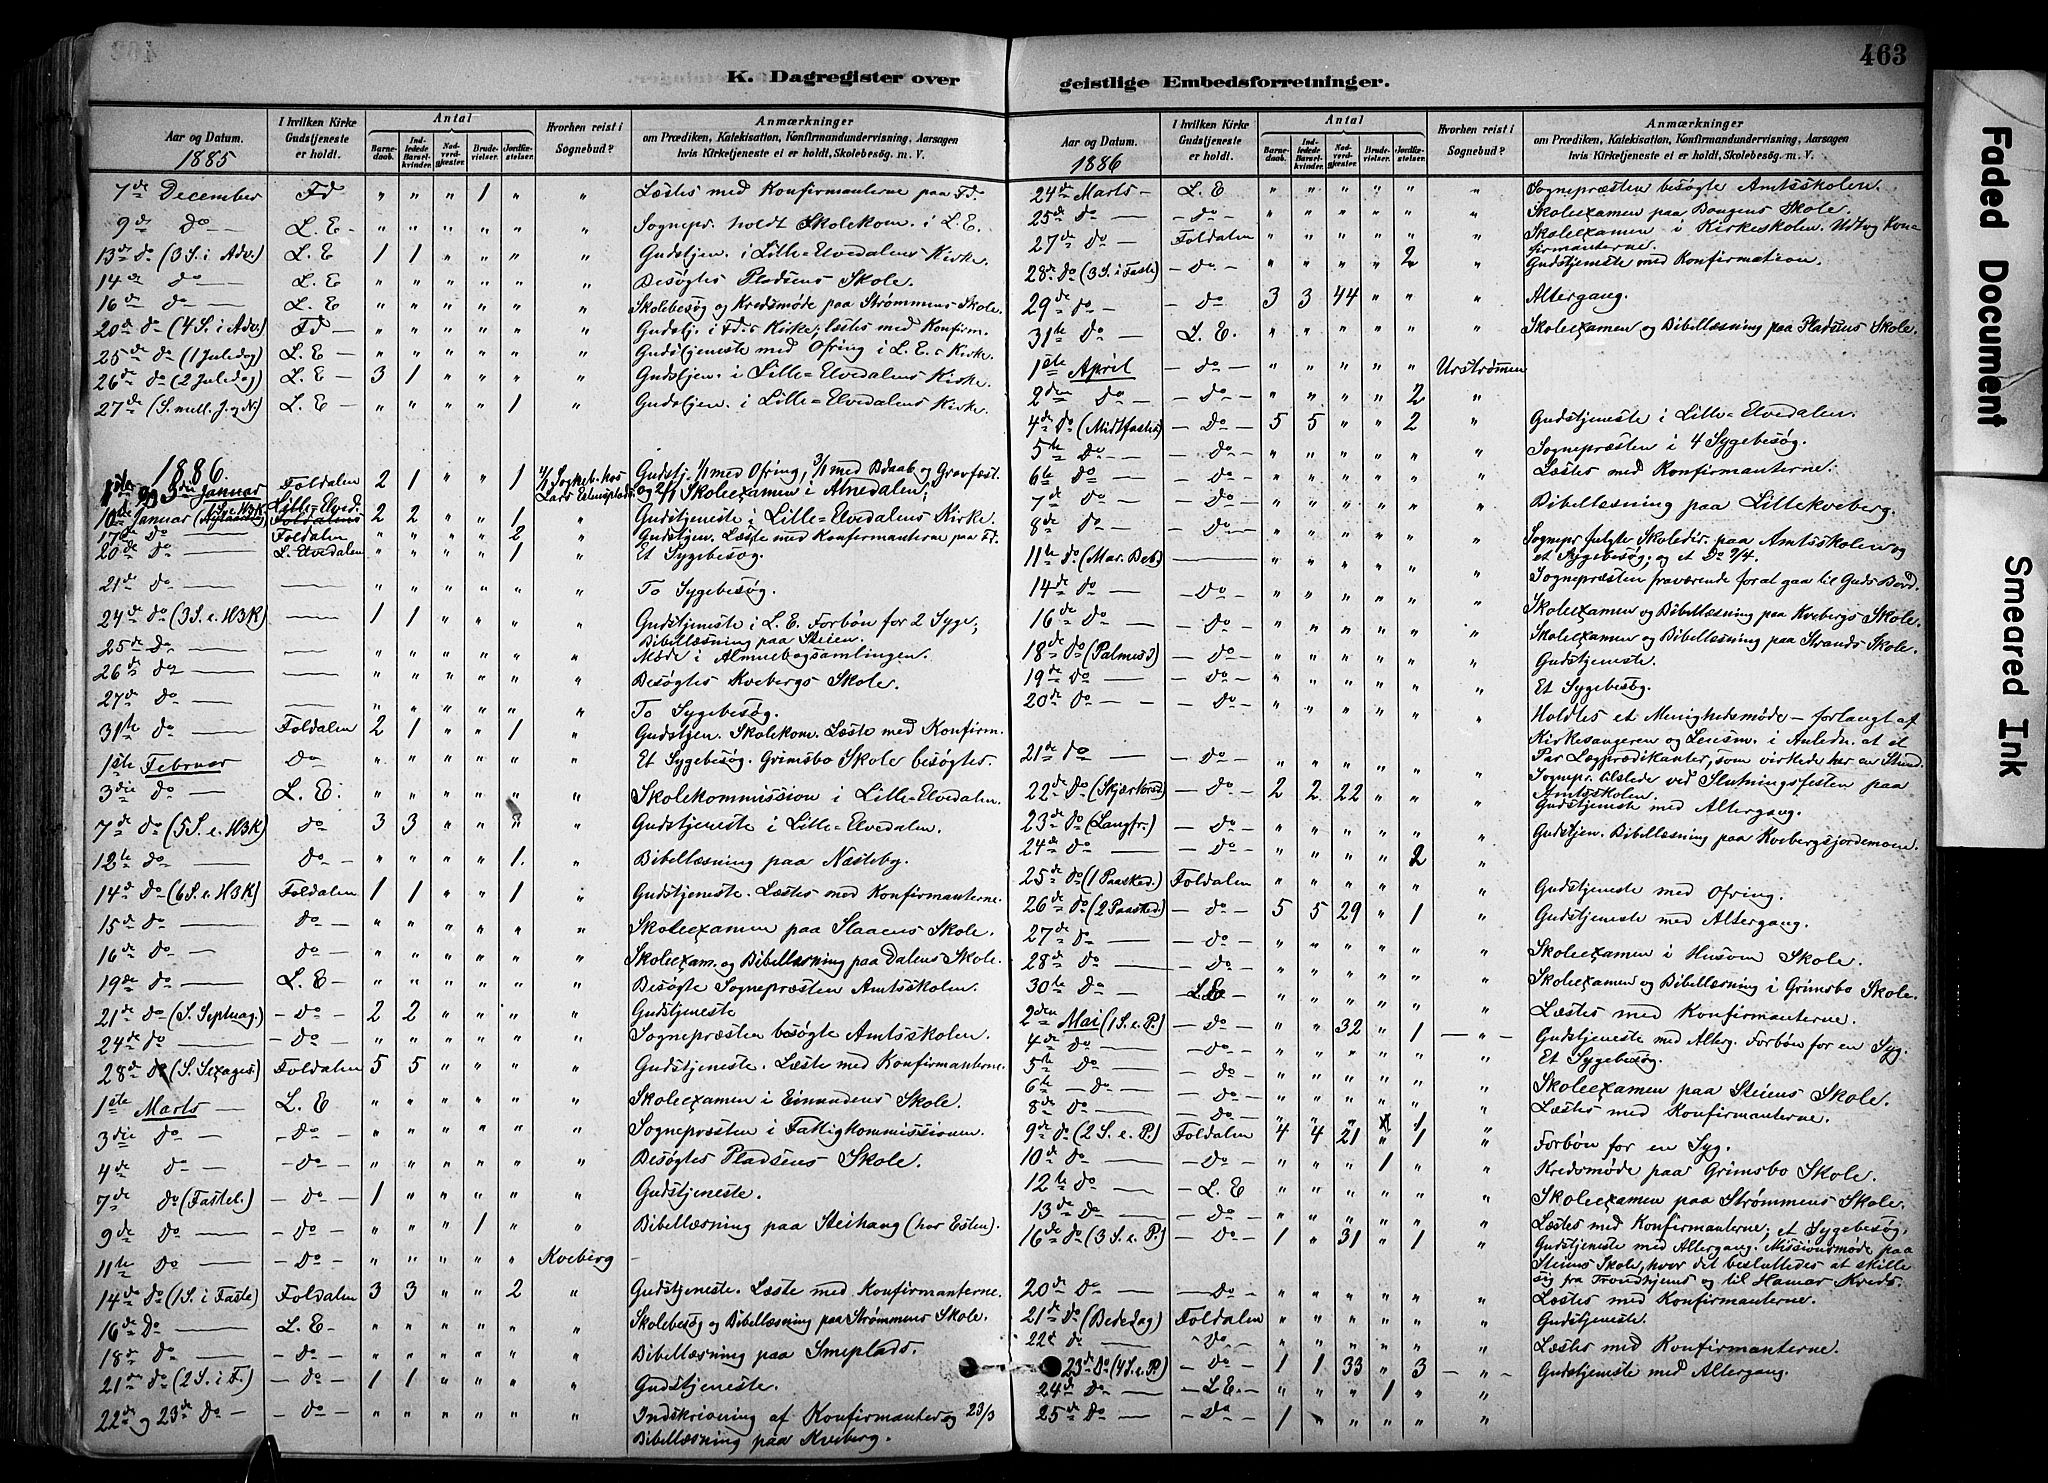 463
K. Dagregister over
geistlige Embedsforretninger.
Aar og Datum. 1885
I hvilken Kirke Gudstjeneste er holdt.
Antal
Barnedaab. Indledede Barselkvinder. Nadverdgjæster. Brudevielser. Jordfæstelser.
Hvorhen reist i Sognebud?
Anmærkninger
om Prædiken, Katekisation, Konfirmandundervisning, Aarsagen
hvis Kirketjeneste ei er holdt, Skolebesøg. m. V.
7de December Fd " " " 1 " " Læstes med Konfirmanterne paa Fd.
9de do L. E. " " " " " " Sognepr. holdt Skolekom. i L. E.
13de do (3 S. i Adv.) L. E 1 1 " " " " Gudstjen. i Lille-Elvedalens Kirke.
14de do L. E " " " " " " Besøgtes Pladsens Skole.
16de do L. E " " " " " " Skolebesøg og Kredsmøde paa Strømmens Skole.
20de do (4 S. i Adv.) Fd " " " " " " Gudstj. i Fd.s Kirke; læstes med Konfirm.
25de do (1 Juledag) L. E " " " " " " Gudstjeneste med Ofring i L. E.s Kirke.
26de do (2 Juledag) L. E 3 1 " " " " Gudstjen. i Lille-Elvedalens Kirke.
27de (S. mell. J. og N.) L. E " " " " 1 " Gudstjen. i Lille-Elvedalens Kirke.
1886
1ste og 3die Januar Foldalen 2 1 " " 1 4/1 Sogneb. hos Lars Gudstj. 1/1 med Ofring, 3/1 med Bdaab og Gravfæst.
og 2/1 Skoleexamen i Atnedalen;
10de Januar Lille-Elved. 2 2 " " 1 " Gudstjeneste i Lille-Elvedalens Kirke.
17de do Foldalen " " " " 2 " Gudstjen. Læste med Konfirmanterne paa Fd.
20de do L. Elvedalen " " " " 1 " Et Sygebesøg.
21de do " " " " " " To Sygebesøg.
24de do (3 S. e. H3K) 1 1 " " " " Gudstjeneste i L. E. Forbøn for 2 Syge;
Bibellæsning paa Steien.
25de do " " " " " " Møde i Almuebogsamlingen.
26de do " " " " " " Besøgtes Kvebergs Skole.
27de do " " " " " " To Sygebesøg.
31te do Foldalen 2 1 " " 1 " Gudstjen. Skolekom. Læste med Konfirm.
1ste Februar do " " " " " " Et Sygebesøg. Grimsbo Skole besøgtes.
3die do L. E. " " " " " " Skolekommission i Lille-Elvedalen.
7de do (5 S. e. H3K) do 3 3 " " " " Gudstjeneste i Lille-Elvedalen.
12te do do " " " " 1. " Bibellæsning paa Næsteby.
14de do (6 S. e. H3K) Foldalen 1 1 " " 1 " Gudstjeneste. Læstes med Konfirmanterne.
15de do do " " " " " " Skoleexamen paa Slaaens Skole.
16de do do " " " " " " Skoleexam. og Bibellæsning paa Dalens Skole.
19de do L. E " " " " " " Besøgte Sognepræsten Amtsskolen.
21de do (S. Septuag.) do 2 2 " " " " Gudstjeneste
24de do do " " " " " " Sognepræsten besøgte Amtsskolen.
28de do (S. Sexages) Foldalen 5 5 " " " " Gudstjeneste. Læste med Konfirmanterne.
1ste Marts L. E " " " " " " Skoleexamen i Einundens Skole.
3die do do " " " " " " Sognepræsten i Fattigkommissionen.
4de do do " " " " " " Besøgtes Pladsens Skole.
7de do (Fastel.) do 1 " " " " " Gudstjeneste.
9de do do " " " 1 " " Bibellæsning paa Steihaug (hos Esten).
11te do do " " " " " Kveberg
14de do (1 S. i Faste) Foldalen 3 3 " " 2 " Gudstjeneste. Læste med Konfirmanterne.
16de do L. E " " " " " " Skolebesøg og Bibellæsning paa Strømmens Skole.
18de do do " " " " " " Bibellæsning paa Smeplads.
21de do (2 S. i F.) do 1 1 " " " " Gudstjeneste.
22de og 23de do do " " " " " " Indskrivning af Konfirmanter og 23/3
Bibellæsning paa Kveberg.
Aar og Datum. 1886
I hvilken Kirke Gudstjeneste er holdt.
Antal
Barnedaab. Indledede Barselkvinder. Nadverdgjæster. Brudevielser. Jordfæstelser.
Hvorhen reist i Sognebud?
Anmærkninger
om Prædiken, Katekisation, Konfirmandundervisning, Aarsagen
hvis Kirketjeneste ei er holdt, Skolebesøg. m. V.
24de Marts L. E " " " " " " Sognepræsten besøgte Amtsskolen.
25de do do " " " " " " Skoleexamen paa Bougens Skole.
27de do Foldalen " " " " " " Skoleexamen i Kirkeskolen. Udtog Konfirmanterne.
28de do (3 S. i Faste) do " " " " 2 " Gudstjeneste med Konfirmation.
29de do do 3 3 44 " " " Altergang.
31te do L. E. " " " " " " Skoleexamen og Bibellæsning paa Pladsens Skole.
1ste April do " " " " " Urstrømen
2den do do " " " " 2 "
4de do (Midtfaste) do 5 5 " " 2 " Gudstjeneste i Lille-Elvedalen.
5te do do " " " " " " Sognepræsten i 4 Sygebesøg.
6te do do " " " " " " Læstes med Konfirmanterne.
7de do do " " " " " "
8de do do " " " " " " Bibellæsning paa Lillekveberg.
11te do (Mar. Beb.) " " " " " " Sognepr. fulgte Skoledir. paa Amtsskolen og
et Sygebesøg; og et do 9/4.
14de do do " " " " " " Sognepræsten fraværende for at gaa til Guds Bord.
16de do do " " " " " " Skoleexamen og Bibellæsning paa Kvebergs Skole.
18de do (Palmes.) do " " " " " " Skoleexamen og Bibellæsning paa Strands Skole.
19de do do " " " " " " Gudstjeneste.
20de do do " " " " " " Et Sygebesøg.
Holdtes et Menighedsmøde – forlangt af
21de do do " " " " " " Kirkesangeren og Lensm. i Anledn. at et
Par Lægprædikanter, som virkede her en Stund.
22de do (Skjærtorsd.) do 2 2 22 " " " Sognepr. tilstede ved Slutningsfesten paa
Amtsskolen.
Gudstjeneste med Altergang.
23de do (Langfr.) do " " " " " " Gudstjen. Bibellæsning paa Kvebergsjordemoen.
24de do do " " " " 2 "
25de do (1 Paasked.) Foldalen " " " " " " Gudstjeneste med Ofring.
26de do (2 Paasked.) do 5 5 29 " 1 " Gudstjeneste med Altergang.
27de do do " " " " " " Skoleexamen i Husom Skole.
28de do do " " " " " " Skoleexamen og Bibellæsning i Grimsbo Skole.
30te do L. E " " " " " " Læstes med Konfirmanterne.
2den Mai (1 S. e. P.) do " " 32 " 1 " Gudstjeneste med Alterg. Forbøn for en Syg.
4de do do " " " " " " Et Sygebesøg.
5te do do " " " " " "
6te do do " " " " " " Skoleexamen paa Steiens Skole.
8de do do " " " 1 " Læstes med Konfirmanterne.
9de do (2 S. e. P.) Foldalen 4 4 21 " 1 " Forbøn for en Syg.
10de do do " " " 1 " " Kredsmøde paa Grimsbo Skole.
12te do L. E " " " " " " Skoleexamen paa Strømmens Skole.
13de do do " " " " " " Læstes med Konfirmanterne; et Sygebesøg.
16de do (3 S. e. P.) do 1 " 31 " 1 " Gudstjeneste med Altergang. Missionsmøde paa
Steiens Skole, hvor det besluttedes at skille
20de do do " " " " " " sig fra Trondhjems og til Hamar Kreds.
Læstes med Konfirmanterne.
21de do (Bededag) Foldalen " " " " " " Gudstjeneste.
22d do do " " " " " " Læstes med Konfirmanterne.
23de do (4 S. e. P.) do 1 1 33 " 3 " Gudstjeneste med Altergang.
24de do L. E. " " " 1 " "
25de do do 1 " " " " "
Faded Document
Smeared Ink